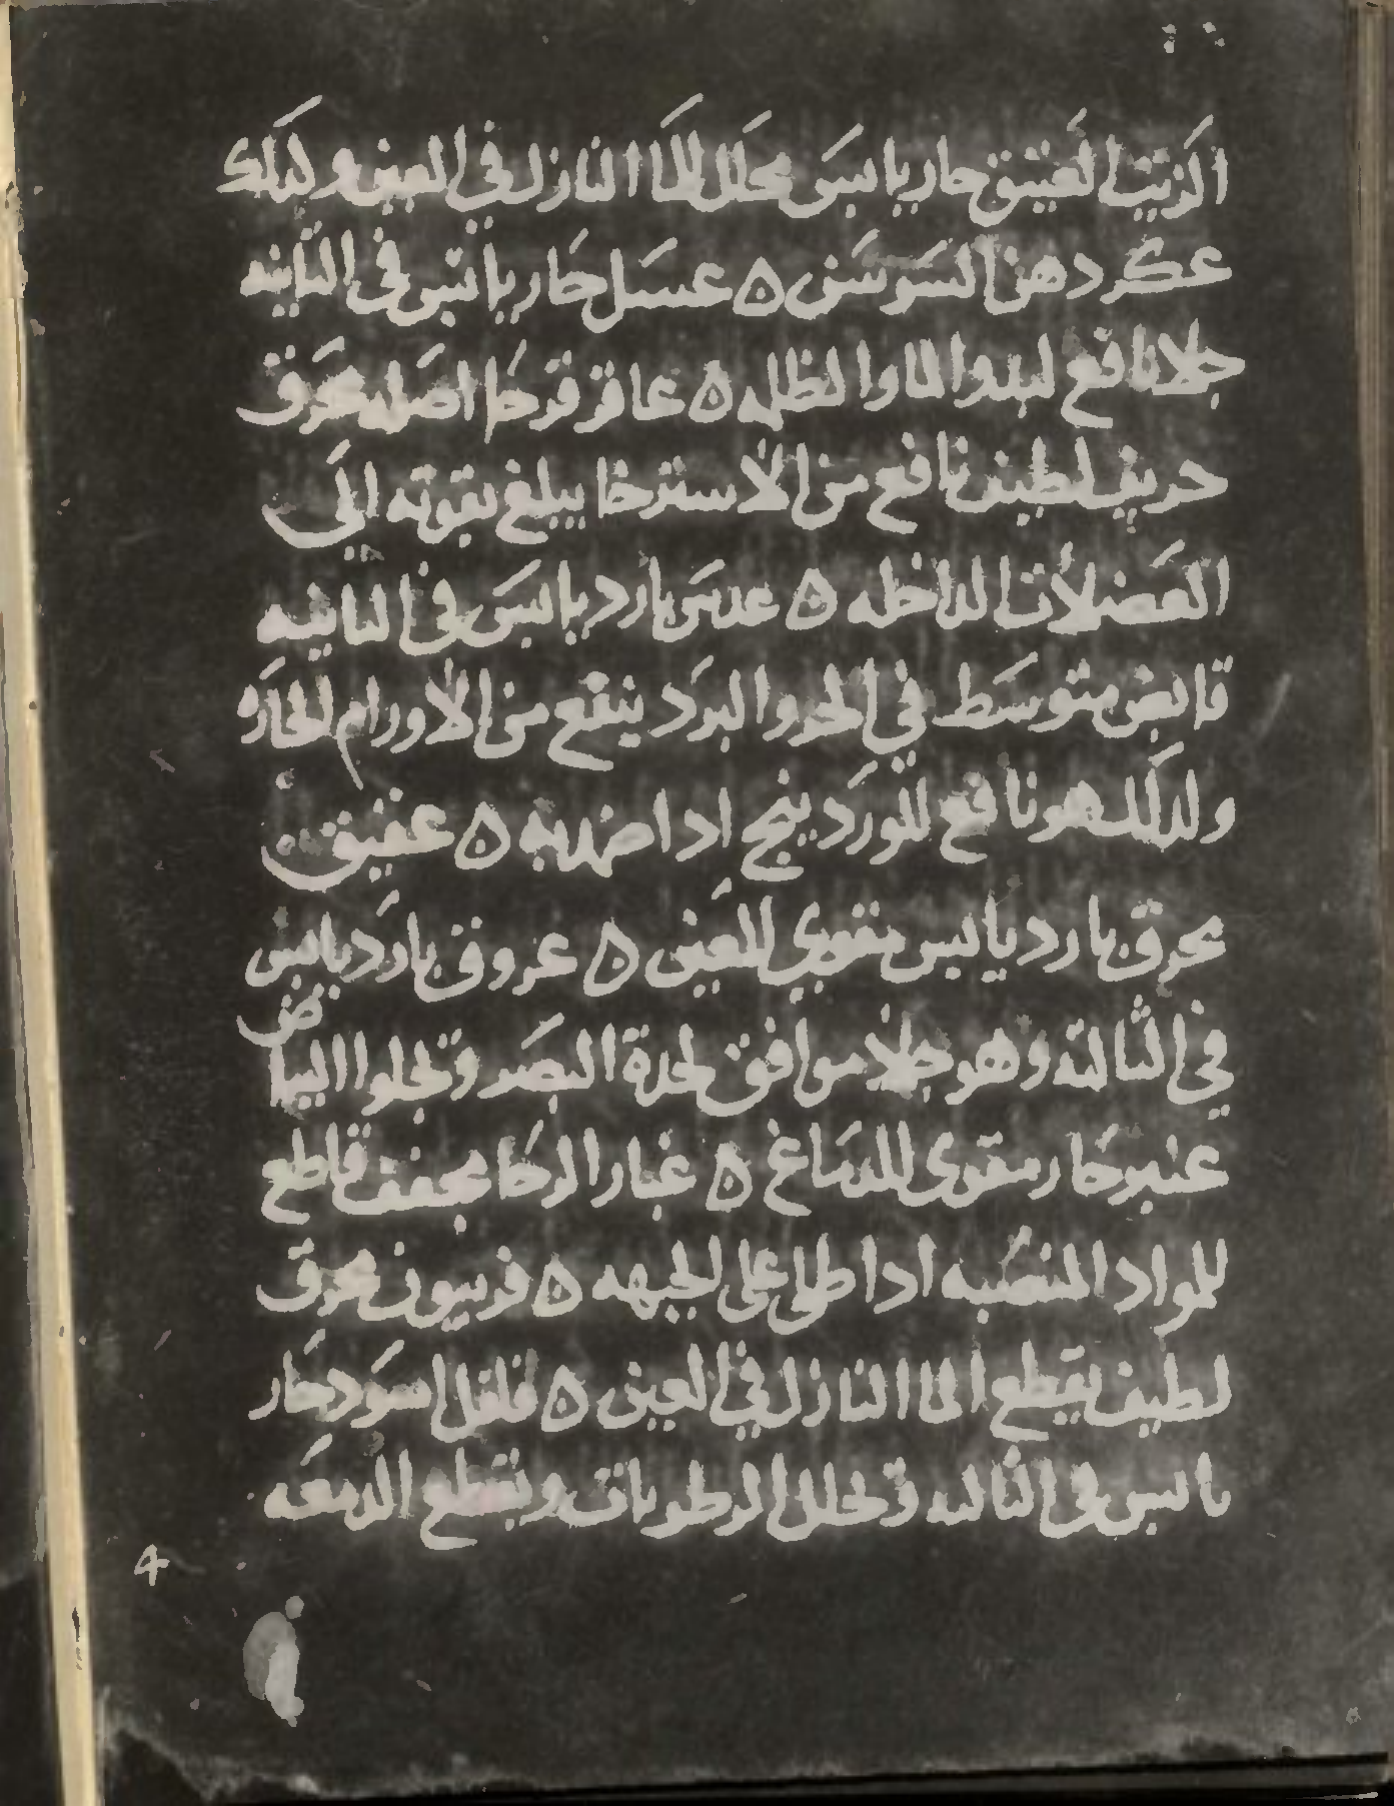 الزيت العتيق حار يابس محلل للما النازل في العين وكدلك
عكر دهن السوسن ه عسل حار يابس في الثانيه
جلا نافع لبدو الما والظلمه ه عاقر قرحا اصل محرق
حريف لطيف نافع من الاسترخا يبلغ بقوته الى
العضلات الداخله ه عدس بارد يابس في الثانيه
قابض متوسط في الحر والبرد ينفع من الاورام الحاره
ولدلك هو نافع للورد ينجح ادا ضمد به ه عقيق
محرق بارد يابس مقوي للعين ه عروق بارد يابس
في الثالثه وهو جلا موافق لحدة البصر وتجلوا البياض
عنبر حار مقوى للدماغ ه غبار الرحا مجفف قاطع
للمواد المنصبه ادا طلى على الجبهه ه فربيون محرق
لطيف يقطع الما النازل في العين ه فلفل اسود حار
يابس في الثالثه وتحلل الرطوبات ويقطع الدمعه
4